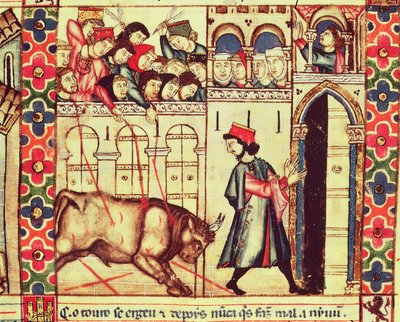 C.o touro se ergeu ⁊ depoys nūca q̄s faz̄ mal. a nȳuū.